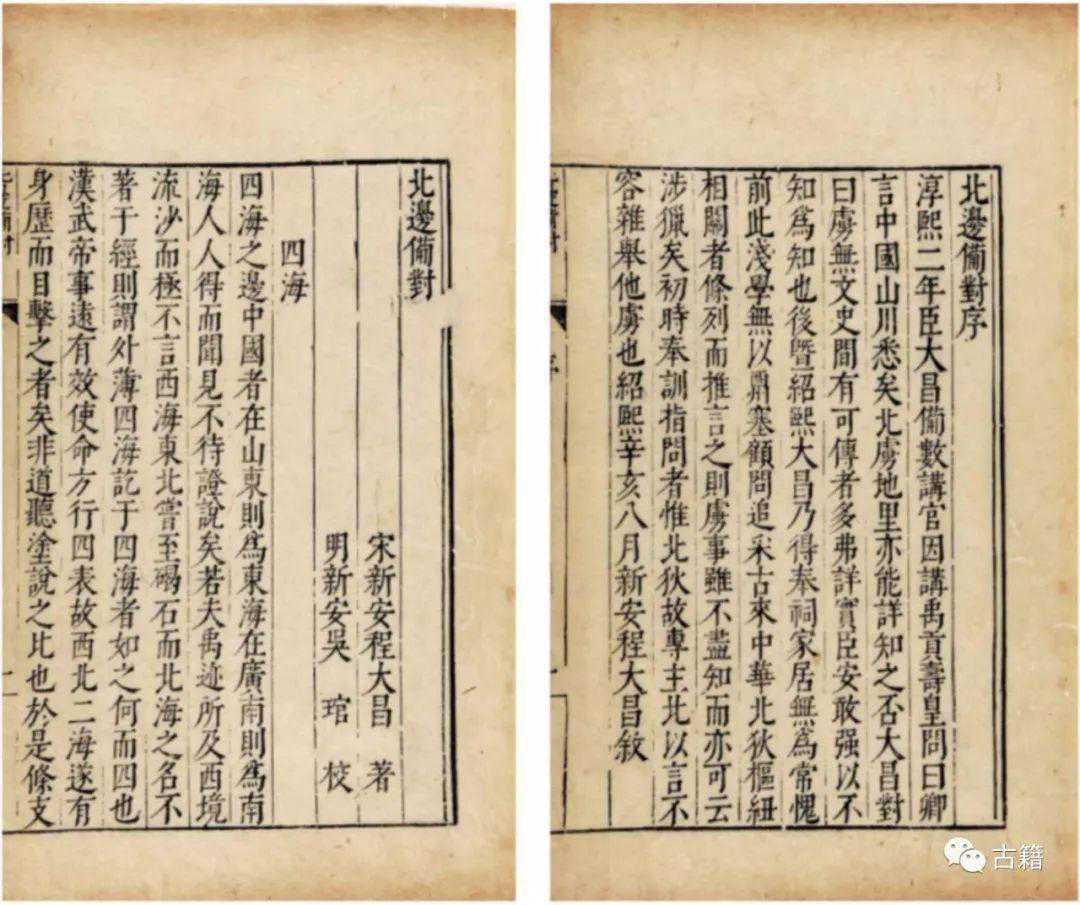 北邊備對序
淳熙二年臣大昌備數講官因講禹貢壽皇問曰卿
言中國山川悉矣北虜地里亦能詳知之否大昌對
曰虜無文史間有可傳者多弗詳實臣安敢强以不
知爲知也後暨紹熙大昌乃得奉祠家居無爲常愧
前此淺學無以鼎塞顧問追采古來中華北狄樞紐
相關者條列而推言之則虜事雖不盡知而亦可云
涉獵矣初時奉訓指問者惟北狄故專主北以言不
容雜舉他虜也紹熙辛亥八月新安程大昌敘
序
一
北邊備對
宋新安程大昌 著
明新安吳 琯 校
四海
四海之邊中國者在山東則爲東海在廣南則爲南
海人人得而聞見不待證說矣若夫禹迹所及西境
流沙而極不言西海東北嘗至碣石而北海之名不
著于經則謂外薄四海訖于四海者如之何而四也
漢武帝事遠有效使命方行四表故西北二海遂有
身歷而目擊之者矣非道聽塗說之比也於是條支
一
古籍